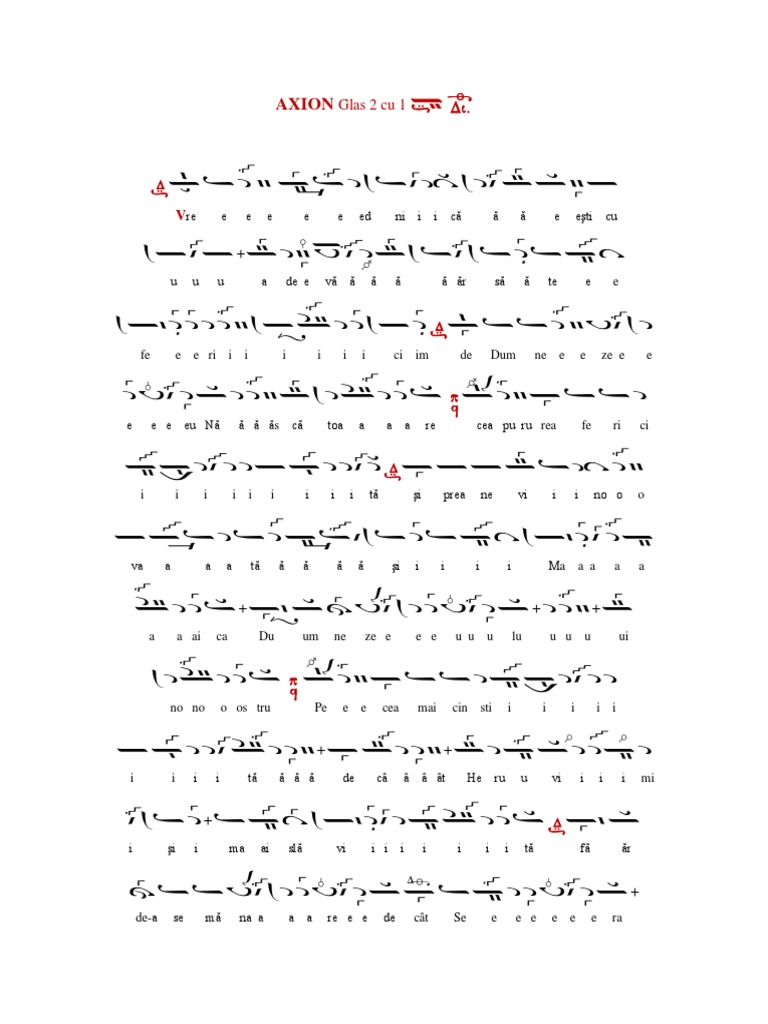 AXION Glas 2 cu 1 Δι.
Vre e e e e e ed ni i i că ă ă e ești cu
u u u a de e vă ă ă ă ă ăr să ă te e e
fe e e ri i i i i i i ci im de Dum ne e e ze e e
e e e eu Nă ă ă ăs că toa a a a re cea pu ru rea fe ri ci
i i i i i i i i i i tă și prea ne vi i i no o o
va a a a tă ă ă ă ă și i i i i Ma a a a a
a a ai ca Du um ne ze e e e u u u lu u u u ui
no no o os tru Pe e e cea mai cin sti i i i i i
i i i i tă ă ă ă de câ â â ât He ru u vi i i i mi
i și i ma ai slă vi i i i i i i i tă fă ăr
de-a se mă na a a a re e e de cât Se e e e e e ra